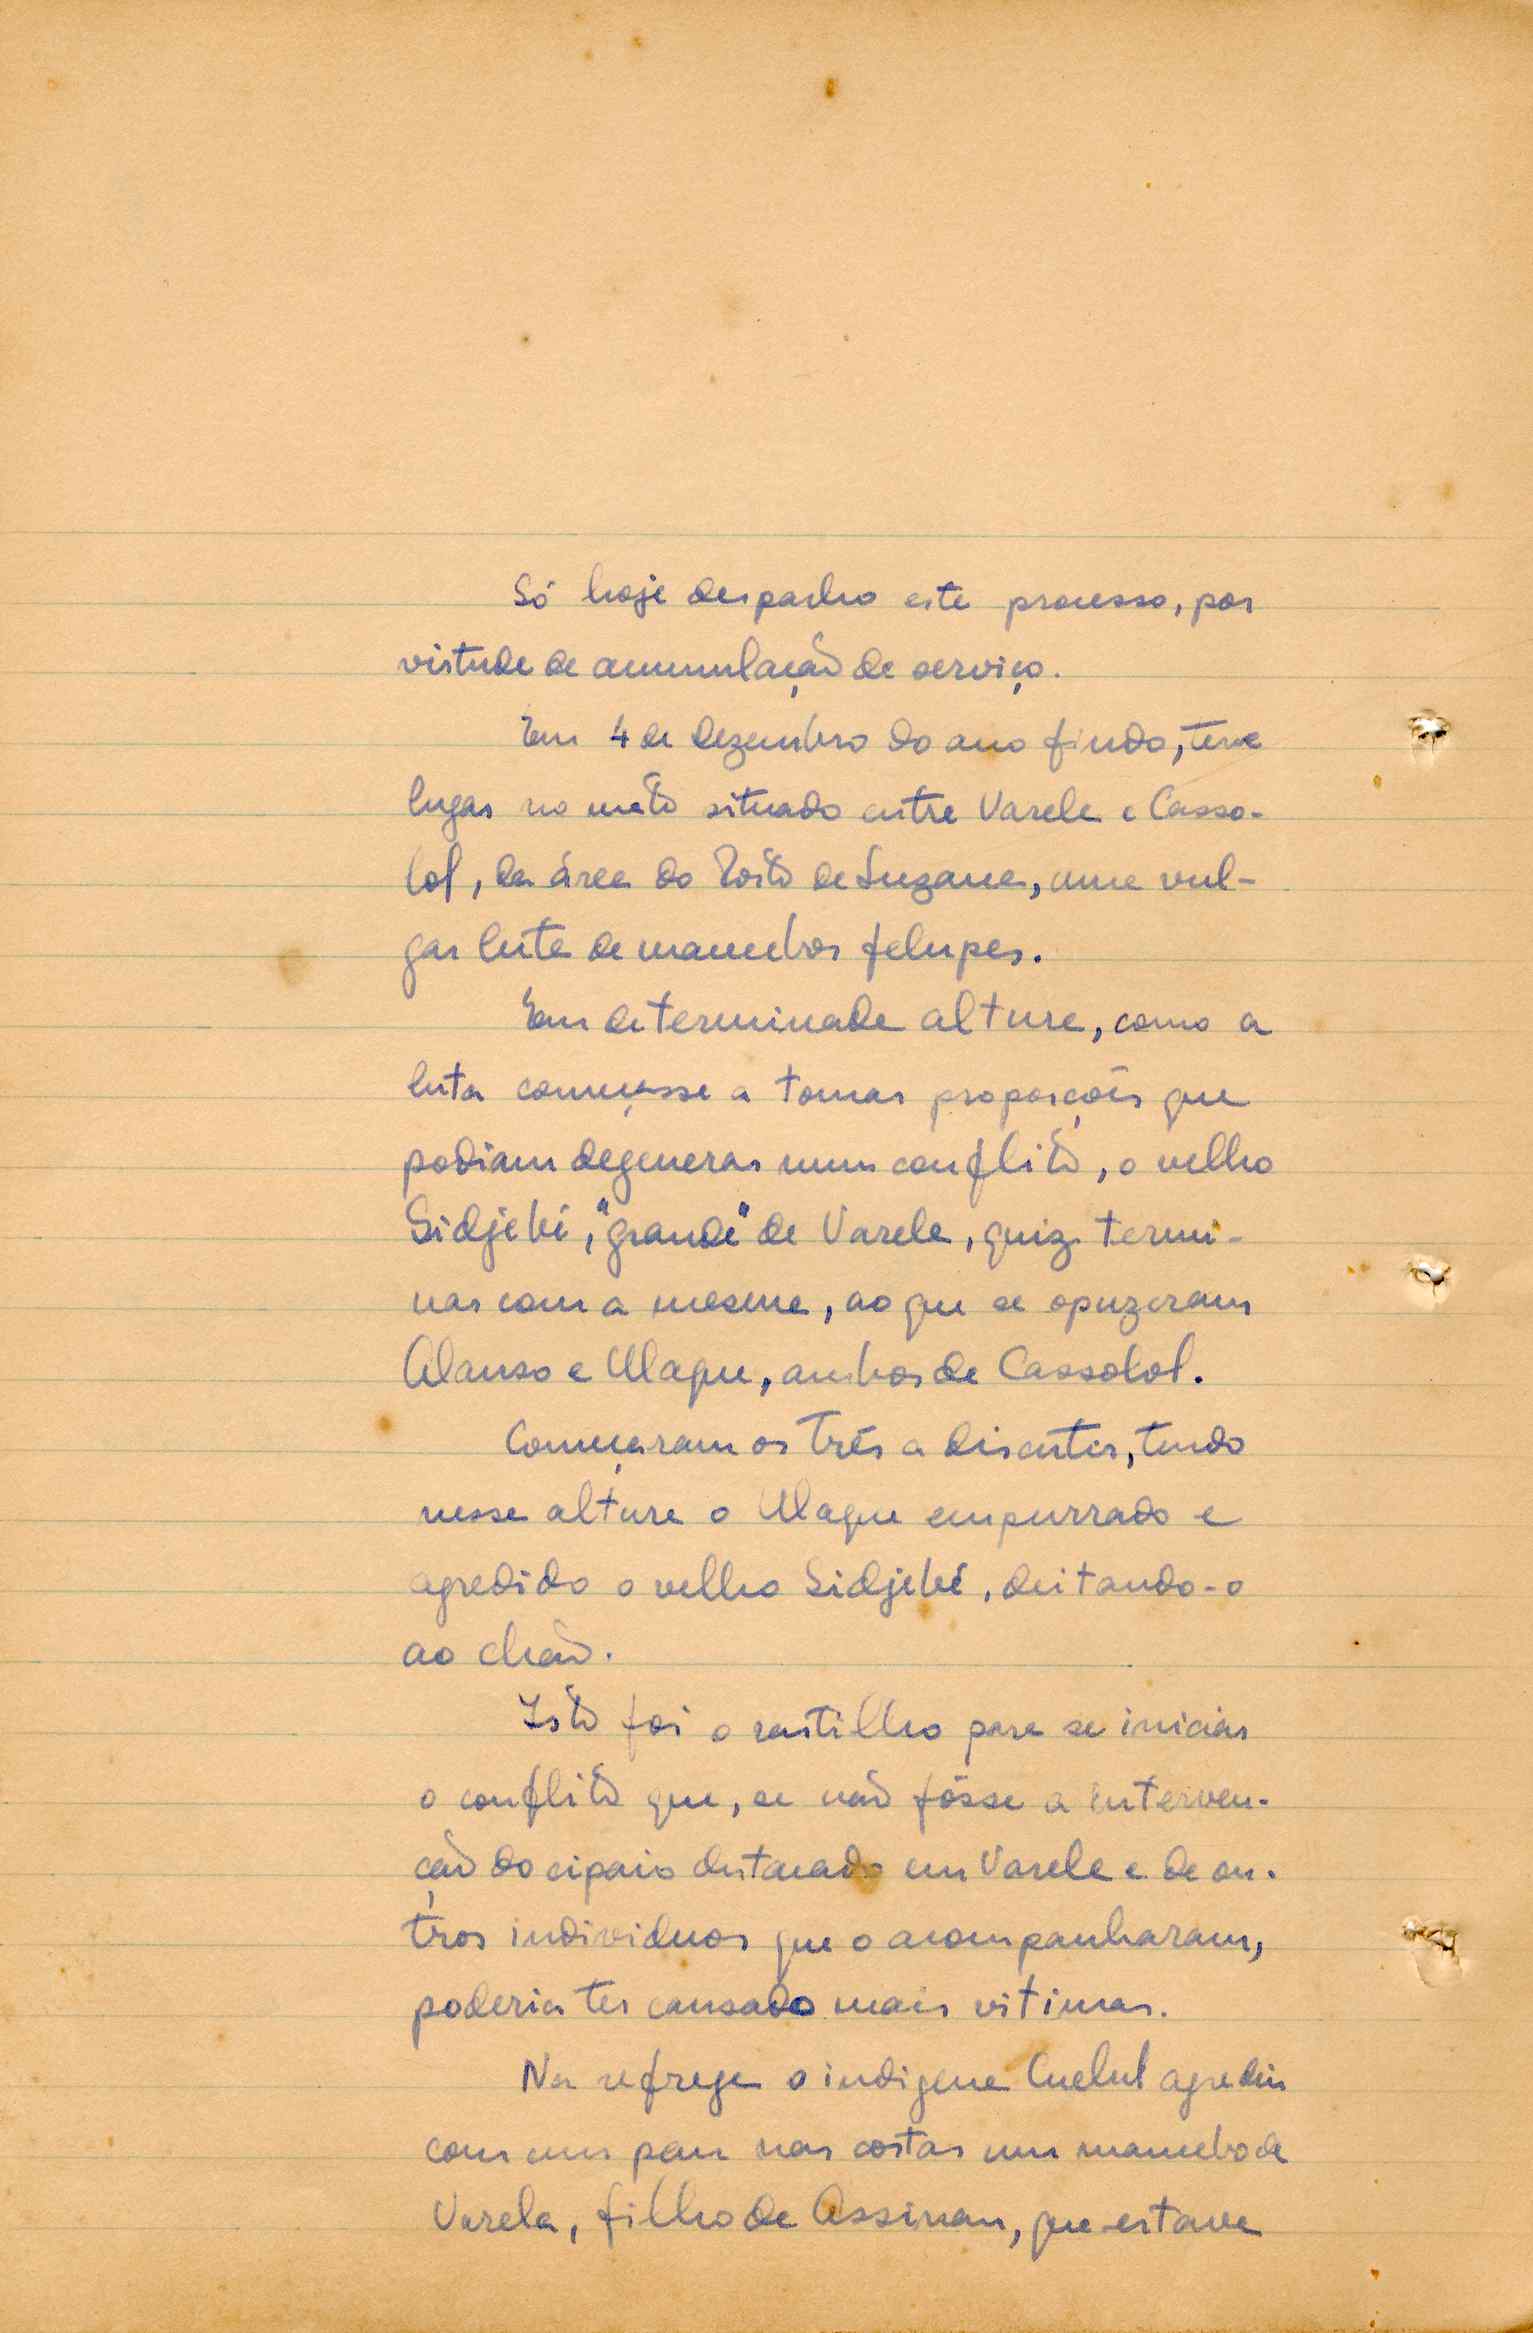 Só hoje despacho este processo, por
virtude de acumulação de serviço.
Em 4 de Dezembro do ano findo, teve
lugar no mato situado entre Varela e Casso-
lol, da área do Posto de Suzana, uma vul-
gar luta de mancebos felupes.
Em determinada altura, como a
luta começasse a tomar proporções que
podiam degenerar num conflito, o velho
Sidjebi, "grande" de Varela, quiz termi-
nar com a mesma, ao que se opuzeram
Alanso e Ulaque, ambos de Cassolol.
Começaram os três a discutir, tendo
nessa altura o Ulaque empurrado e
agredido o velho Sidjebi, deitando-o
ao chão.
Isto foi o rastilho para se iniciar
o conflito que, se não fôsse a interven-
ção do cipaio destacado em Varela e de ou-
tros individuos que o acompanharam,
poderia ter causado mais vitimas.
Na refrega o indigena Cuelul agrediu
com um pau nas costas um mancebo de
Varela, filho de Assinau, que estava